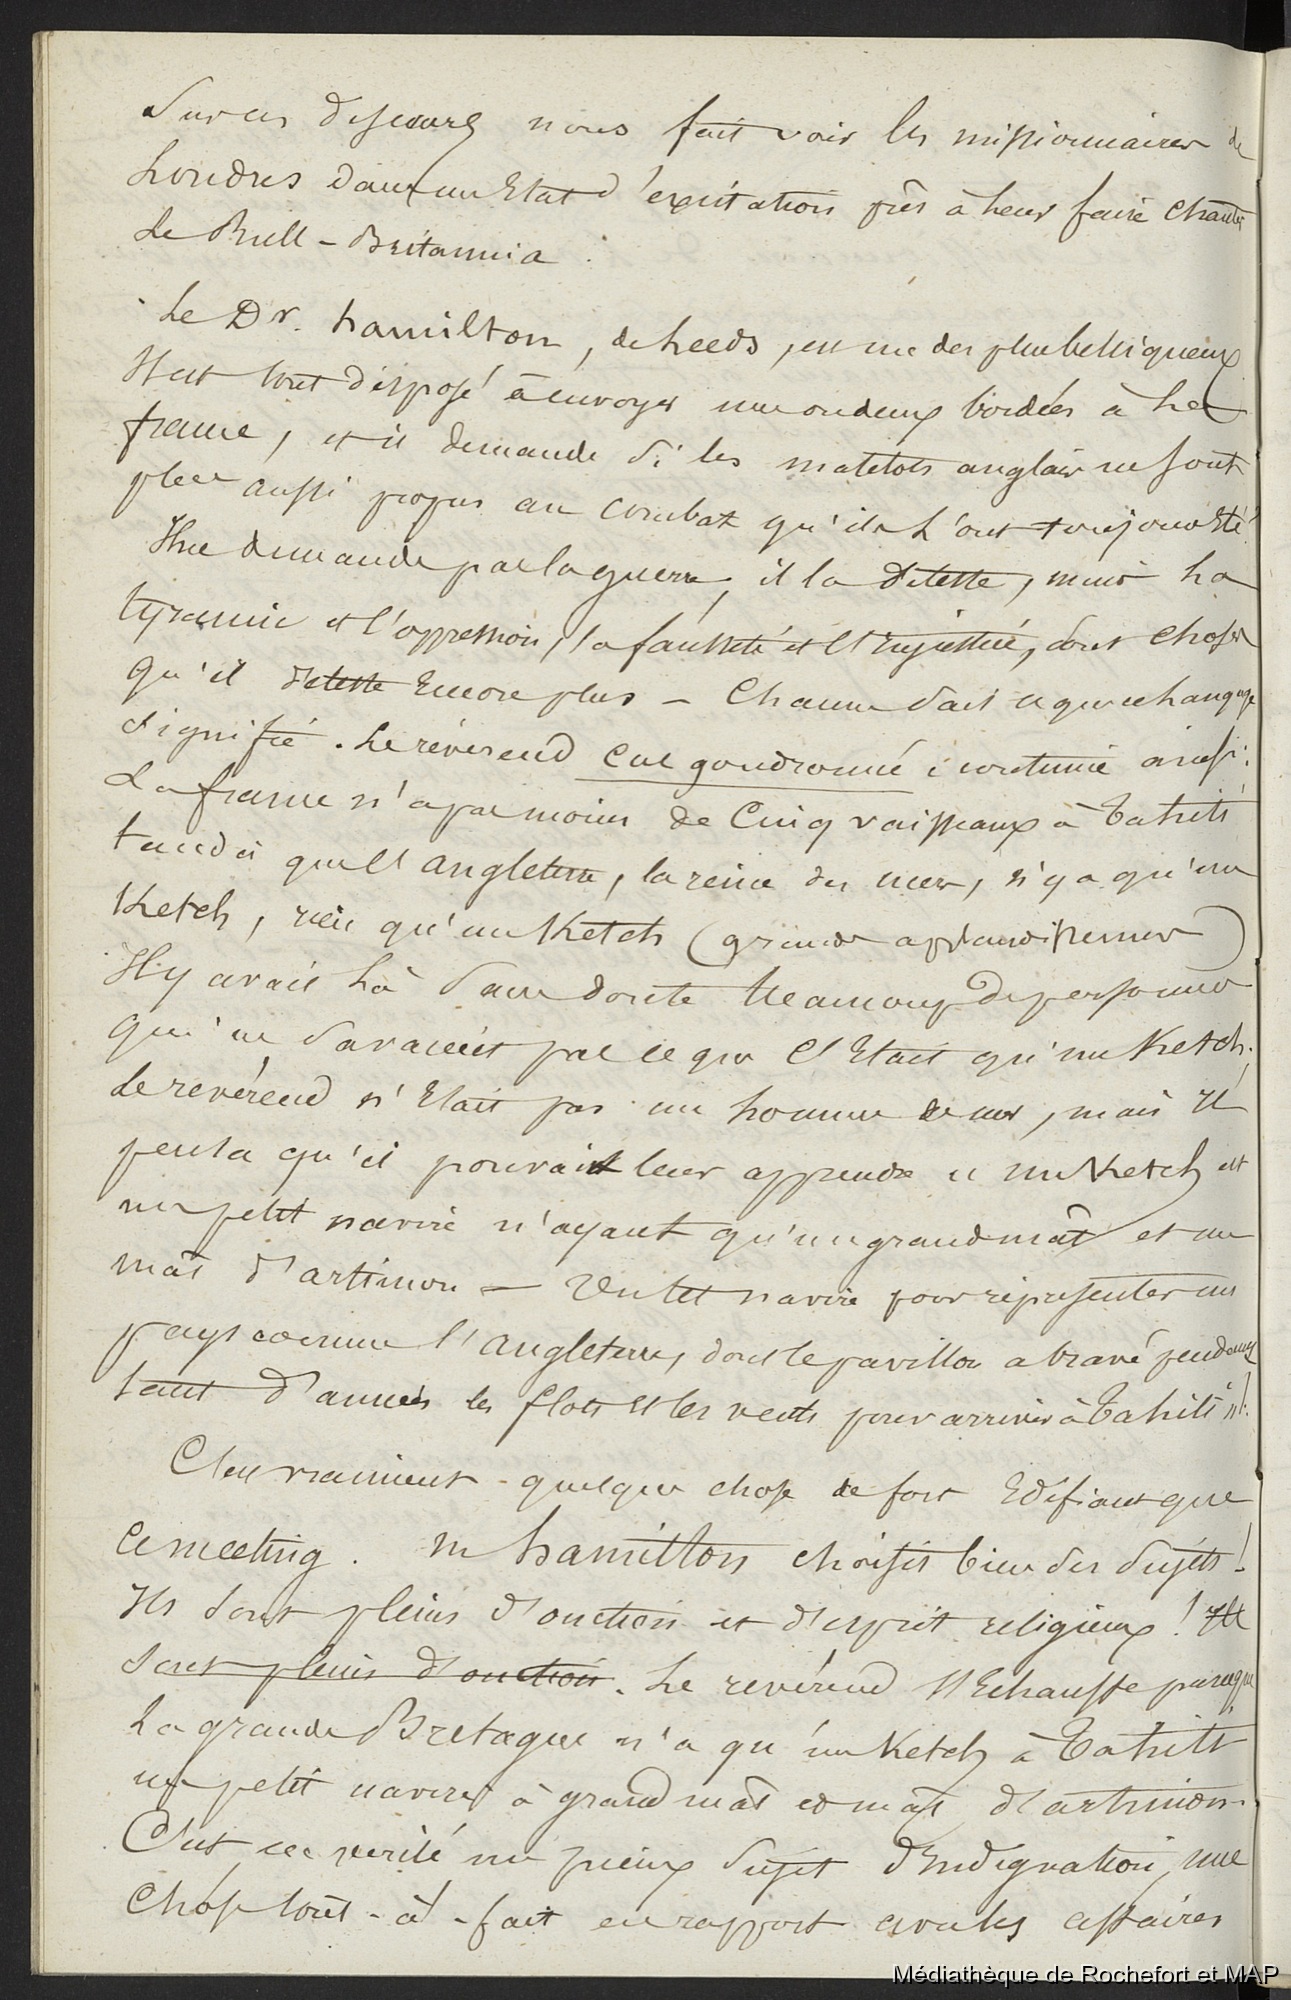 Sur ces discours nous fait voir les missionnaires de
Londres dans un Etat d'exitation près à leur faire chanter
Le Rull-Britannia.
Le Dr. hamilton, de Leeds, est une des plus belliqueux
Il est tout disposé à envoyer une ou deux bordées à La
france, et il demande si les matelots anglais ne sont
plus aussi propres au combat qu'ils L'ont toujours Eté
Il ne demande pas la guerre, il la deteste, mais La
tyrannie et l'oppression, la fausseté et l'injustice, sont choses
qu'il deteste Encore plus - Chacun sait ce que ce Langage
signifie. Le révérend cul goudronné continue ainsi:
La france n'a pas moins de Cinq vaisseaux à Tahiti
tandis que l'angleterre, la reine des mers, n'y a qu'un
Ketch, rien qu'un Ketch (grands applaudissemens)
Il y avait Là Sans doute Beaucoup de personnes
qui ne Savaient pas ce que C'Etait qu'un Ketch.
Le revérend n'Etait pas un homme de mer, mais il
pensa qu'il pouvait leur apprendre un Ketch est
un petit navire n'ayant qu'un grand mât et un
mât d'artimon - Un tel navire pour représenter un
pays comme l'angleterre, dont le pavillon a bravé pendant
tant d'années les flots et les vents pour arriver à Tahiti !!
C'est vraiment quelque chose de fort Edifiant que
ce meeting. M hamilton choisit bien ses Sujets!
Ils Sont pleins d'onction et d'esprit religieux! Ils
Sont pleins d'onction. Le revérend s'Echauffe parceque
La grande Bretagne n'a qu'un Ketch à Tahiti
un petit navire à grand mât et mât d'artimon.
C'est en verité un pieux Sujet d'indignation, une
chose tout-à-fait en rapport avec les affaires
Médiathèque de Rochefort et MAP